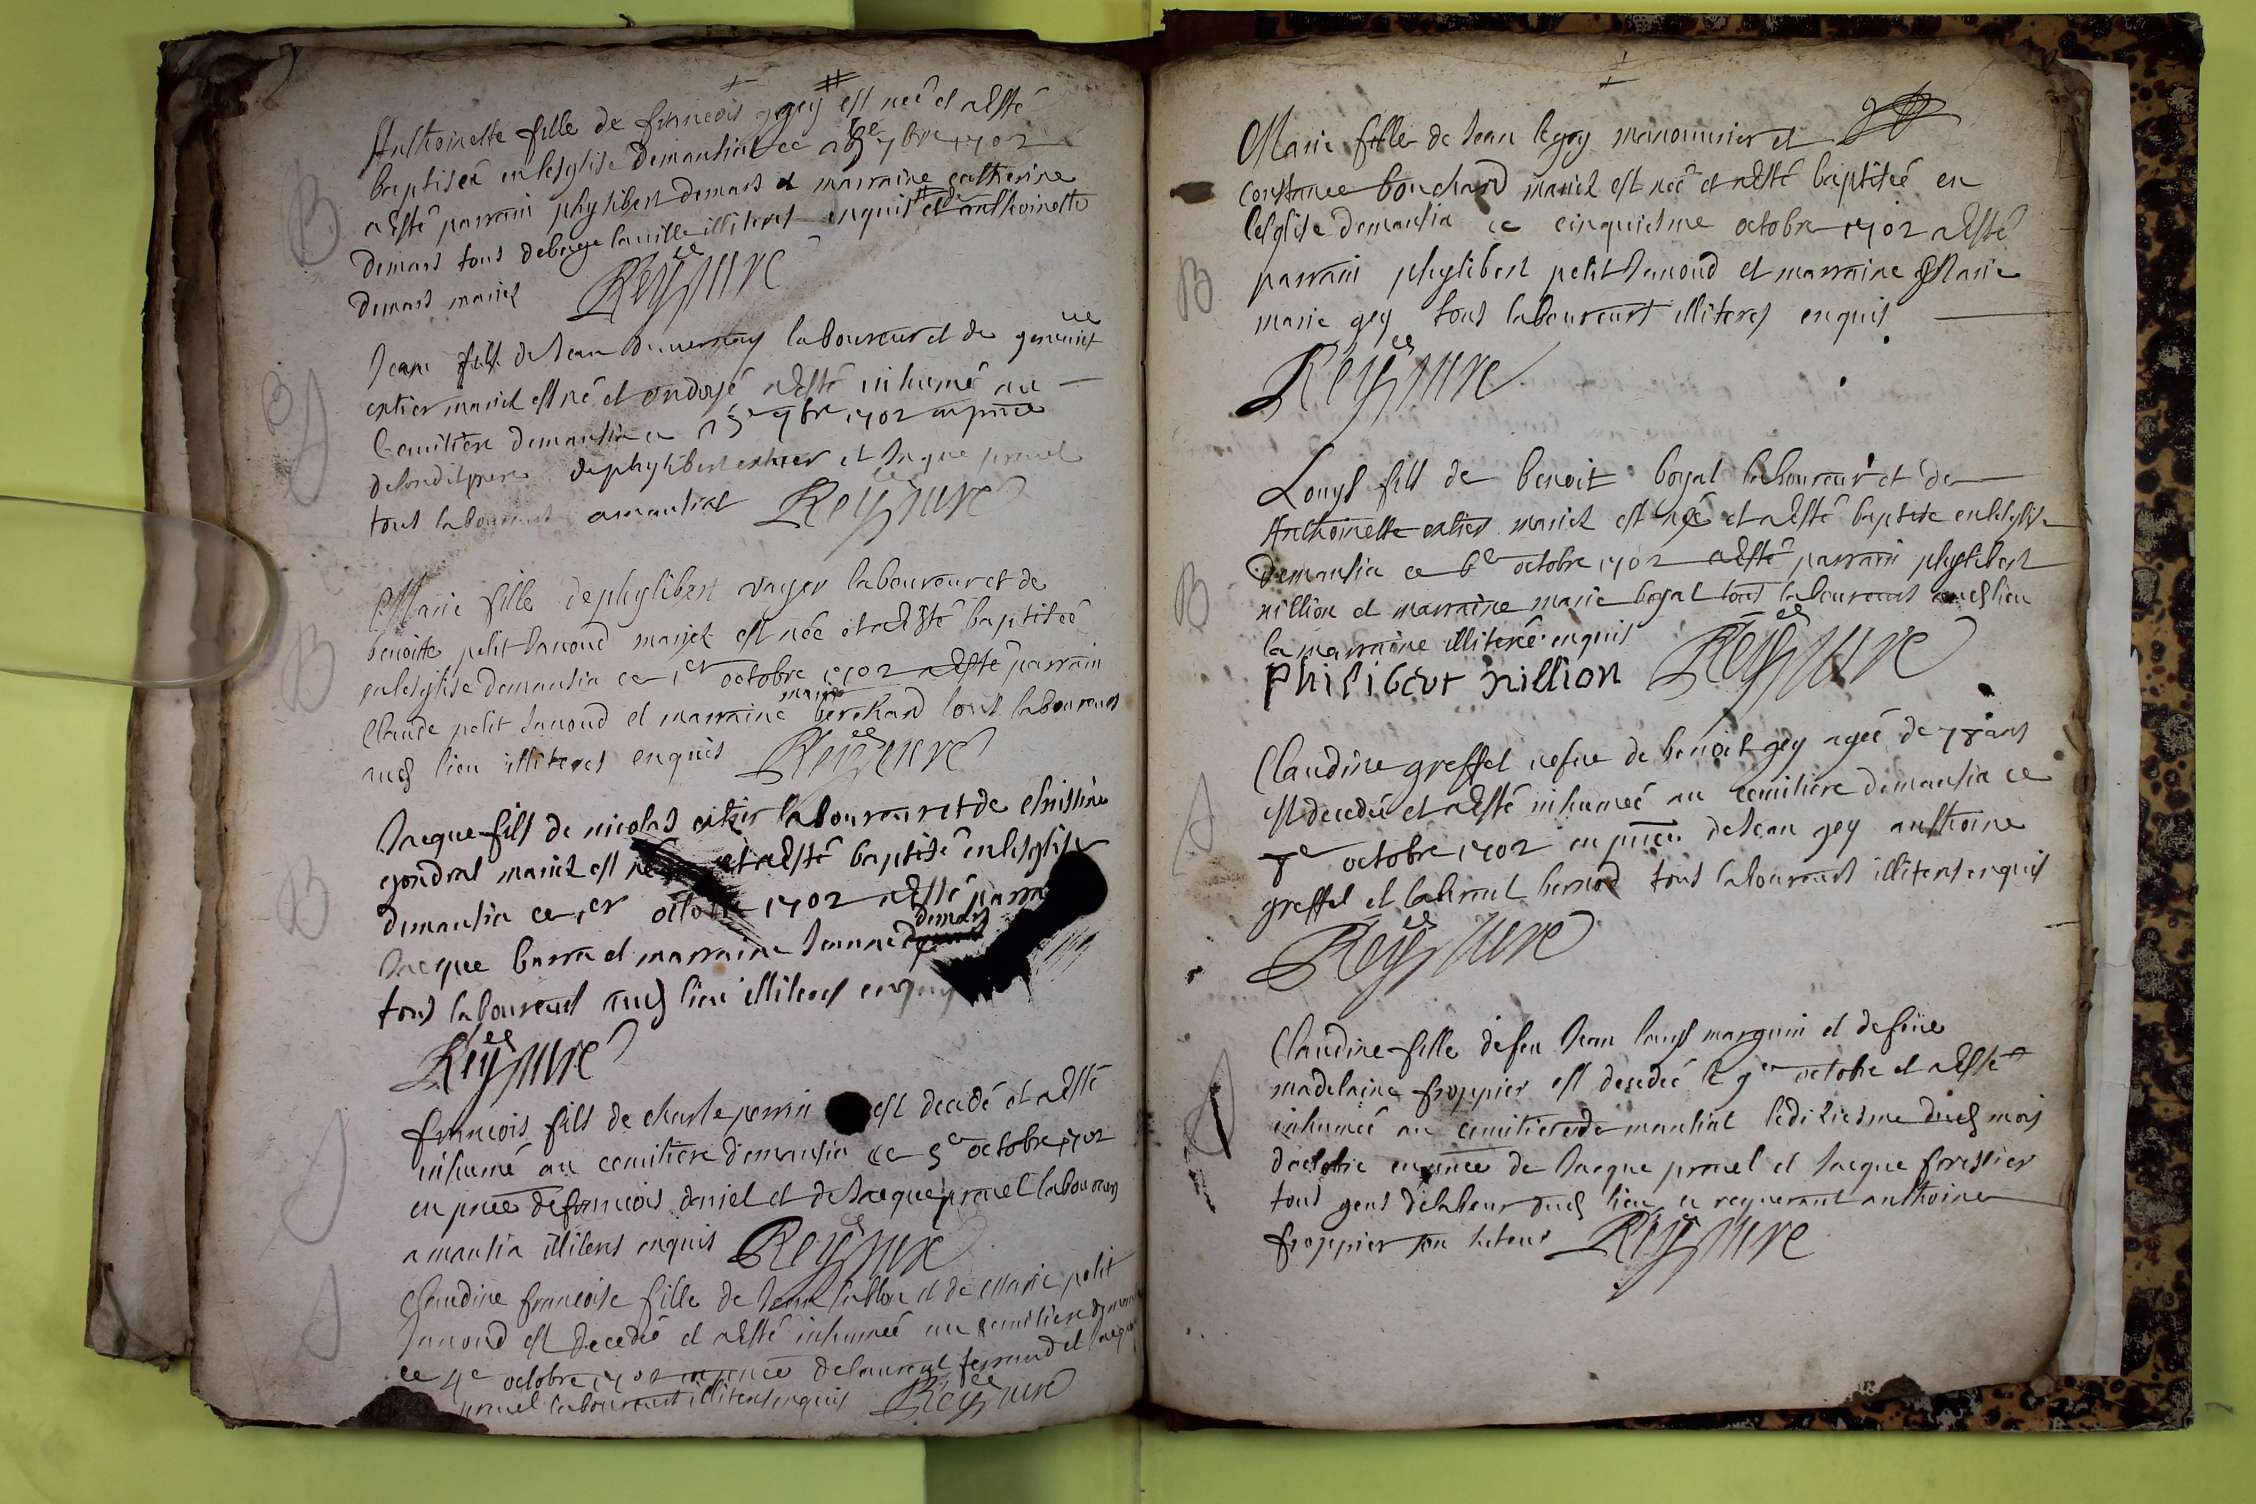 Anthoinette fille de francois gey est neé et a Esté
baptiseé en leglise demantiat ce 7bre 1702
a Esté parrain phylibert demars et marraine catherine
demars tous debage laville illiteres enquis et de anthoinette
demars mariez
Reyssure
Jean fils de Jean Duvernay laboureur et de
cartier mariez est né et ondoyé a Esté inhumé au
Cemitiere demantia ce 7bre 1702 en pnce
desondit pere dephylibert cartier et Jaque pruvel
tous laboureurs amantiat Reyssure
Marie fille dephylibert voyer laboureur et de
benoitte petit Janoud mariez est née et a Esté baptiseé
en leglise demantia ce 1er octobre 1702 a Esté parrain
Claude petit Janoud et marraine marie berthard tous laboureurs
lieu illiteres enquis Reyssure
Jacque fils de nicolas cartier laboureur et de christine
gondras mariez est né et a Esté baptisé en leglise
demantia ce 1er octobre 1702 a Esté parra
Jacque barra et marraine Jeanne demars
tous laboureurs lieu illiteres enquis
Reyssure
francois fils de charle perrin est decedé et a Esté
inhumé au cemitiere demantia ce 3e octobre 1702
en pnce defrancois daniel et de Jacque pruvel laboureurs
amantia illiteres enquis Reyssure
Claudine francoise fille de Jean et de Marie petit
Janoud est Decedeé et a Esté inhumeé au cemitiere
ce 4e octobre 1702 en pnce delaurent ferrand et Jacque
pruvel laboureurs illiteres enquis Reyssure
Marie fille de Jean legey manouvrier et
constance bouchard mariez est neé et a Esté baptiseé en
leglise demantia ce cinquiesme octobre 1702 a Esté
parrain phylibert petit Janoud et marraine Marie
marie gey tous laboureurs illiteres enquis
Reyssure
Louys fils de benoit boyat laboureur et de
Anthoinette cartier mariez est né et a Esté baptise en leglise
demantia ce 6e octobre 1702 a Esté parrain phylibert
nillion et marraine marie boyat tous laboureurs lieu
la marraine illiteré enquis
Philibert nillion Reyssure
Claudine greffet vefve de benoit gey ageé de 78 ans
est decedeé et a Esté inhumeé au cemitiere demantia ce
8e octobre 1702 en pnce de Jean gey anthoine
greffet et bernard tous laboureurs illiteres enquis
Reyssure
Claudine fille defeu Jean louys marguin et defüe
madelaine froppier est decedeé le 9e octobre et a Esté
inhumeé au cemitiere de mantiat ledixiesme mois
doctobre en pnce de Jacque pruvel et Jacque forestier
tous gens delabeur lieu ce requerant anthoine
froppier son tuteur Reyssure